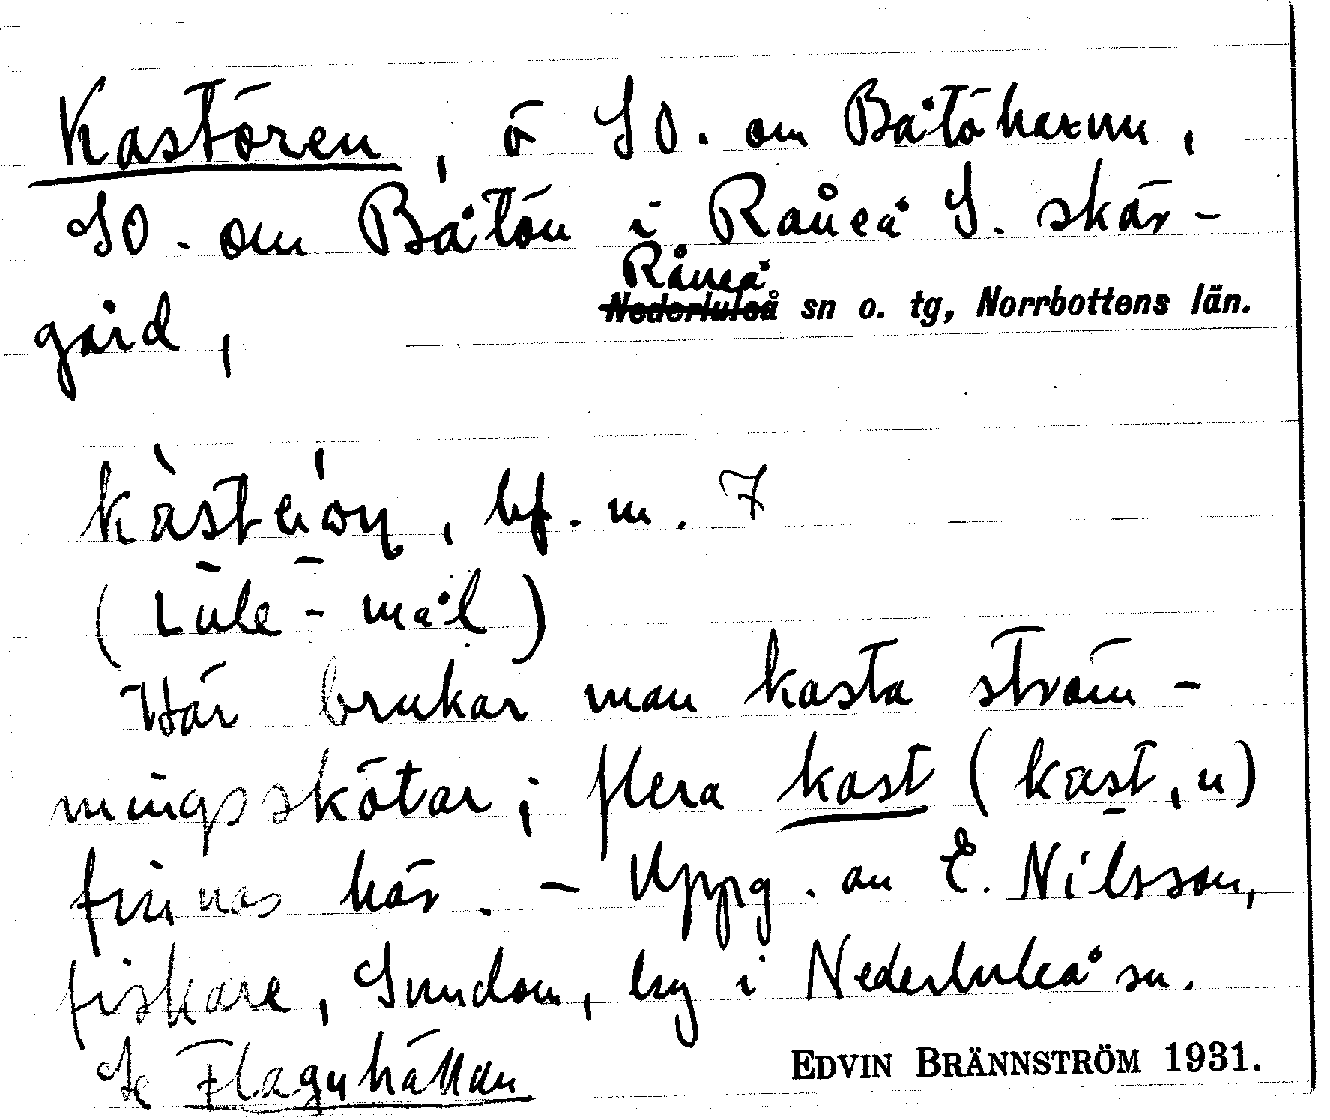 Kastören, ö SO. om Båtöharun,
SO. om Båtön i Råneå S. skär-
Råneå
Nederluleå sn o. tg, Norrbottens län.
gård,
bf. m. 7
(Lule-mål)
Här brukar man kasta ström-
mingsskötar; flera kast (kast, n)
finnas här. – Uppg. av E. Nilsson,
fiskare, Sundom, by i Nederluleå sn.
Se Flaguhällan
EDVIN BRÄNNSTRÖM 1931.